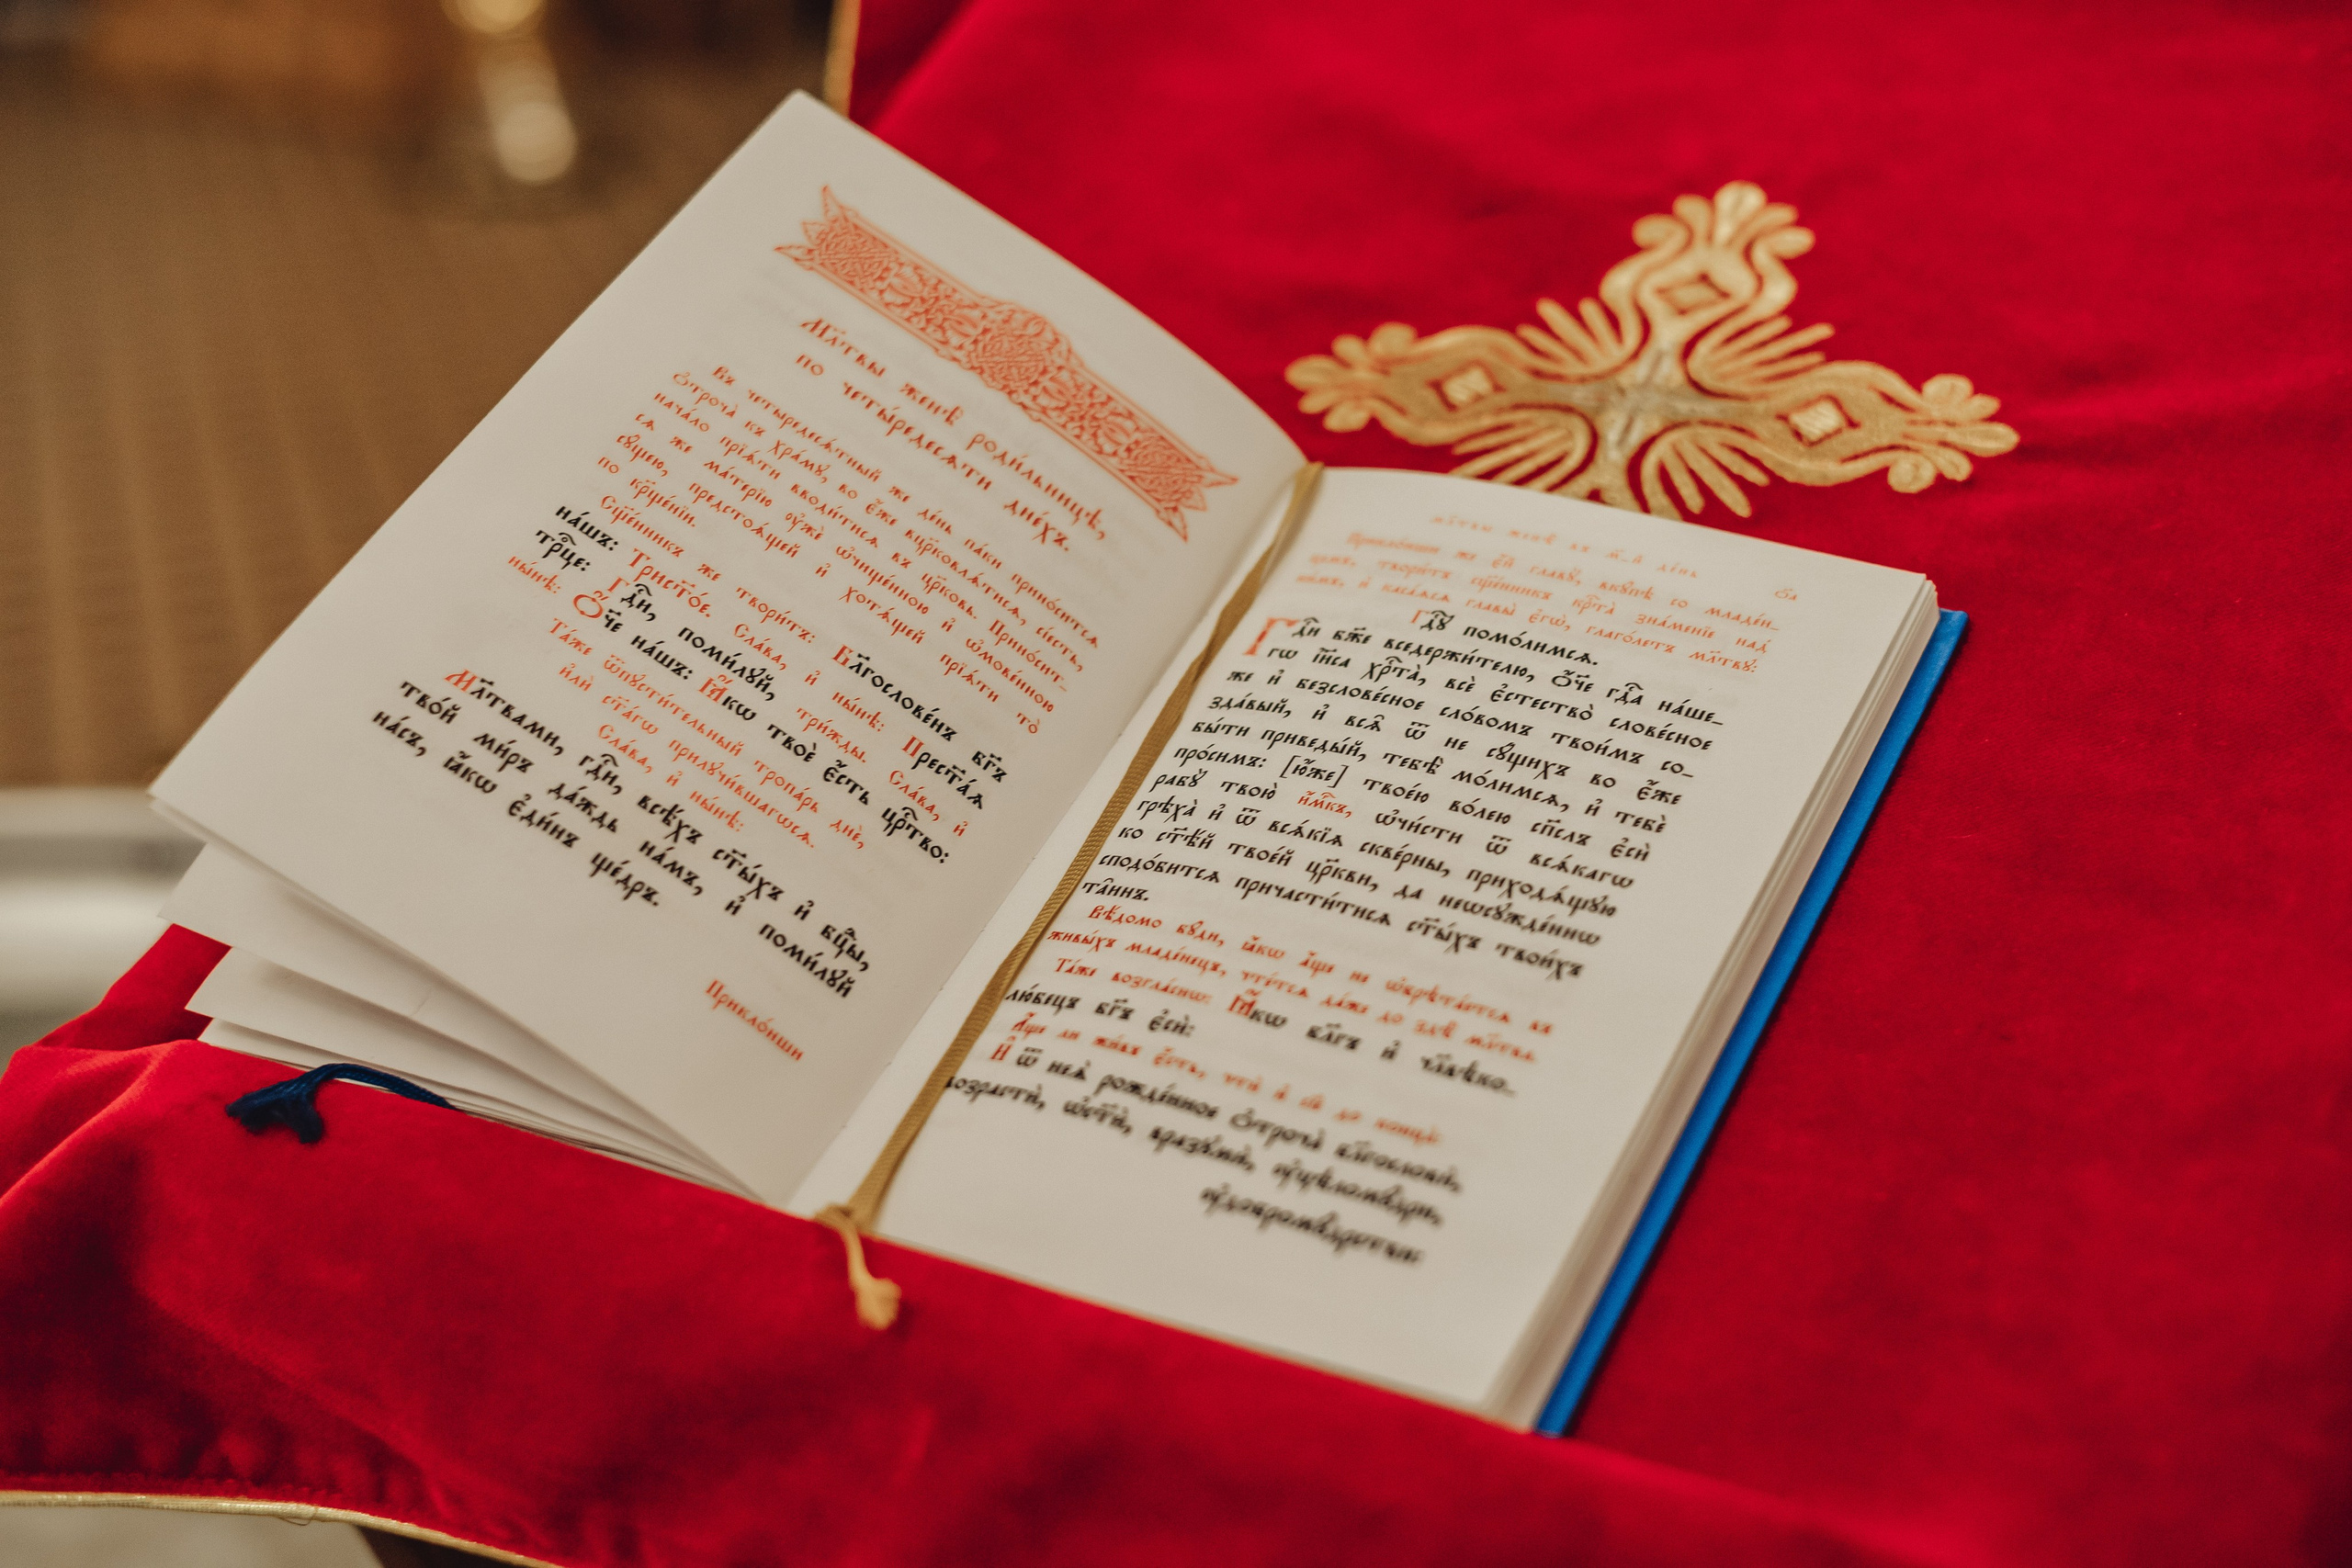 Мл҃твы женѣ̀ роди́льницѣ,
по четы́редесѧти дне́хъ.
Въ четыредесѧ́тный же де́нь па́ки прино́ситсѧ
Ѻ҆троча̀ къ хра́мꙋ, во є҆́же воцр҃кови́тисѧ, сі́есть,
нача́ло прїѧ́ти вводи́тисѧ въ цр҃ковь. Прино́сит-
сѧ же ма́терїю ᲂу҆жѐ ѡ҆чище́нною и҆ ѡ҆мове́нною
сꙋ́щею, предстоѧ́щей и҆ хотѧ́щей прїѧ́ти то̀
по крⷭ҇ще́нїи.
Сщ҃е́нникъ же твори́тъ: Блгⷭ҇ове́нъ бг҃ъ
на́шъ: Трист҃о́е. Сла́ва, и҆ ны́нѣ: Прест҃а́ѧ
трⷪ҇це: Гдⷭ҇и, поми́лꙋй, три́жды. Сла́ва, и҆
ны́нѣ: Ѻ҆́ч҃е на́шъ: Ꙗ҆́кѡ твоѐ є҆́сть црⷭ҇тво:
Та́же ѿпꙋсти́тельный тропа́рь днѐ,
и҆лѝ ст҃а́гѡ прилꙋчи́вшагѡсѧ.
Сла́ва, и҆ ны́нѣ:
Мл҃твами, гдⷭ҇и, всѣ́хъ ст҃ы́хъ и҆ бцⷣы,
тво́й ми́ръ да́ждь на́мъ, и҆ поми́лꙋй
на́съ, ꙗ҆́кѡ є҆ди́нъ ще́дръ.
Прикло́нши
мл҃твы женѣ̀ въ м҃-й де́нь
Прикло́нши же є҆́й главꙋ̀, вкꙋ́пѣ со младе́н-
цемъ, твори́тъ сщ҃е́нникъ крⷭ҇та̀ зна́менїе над
ни́мъ, и҆ каса́ѧсѧ главы̀ є҆гѡ̀, глаго́летъ мл҃твꙋ:
Гдⷭ҇ꙋ помо́лимсѧ.
Гдⷭ҇и бж҃е вседержи́телю, Ѻ҆́ч҃е гдⷭ҇а на́ше-
гѡ і҆и҃са хрⷭ҇та̀, всѐ є҆стество̀ слове́сное
же и҆ безслове́сное сло́вомъ твои́мъ со-
зда́вый, и҆ всѧ̑ ѿ не сꙋ́щихъ во є҆́же
бы́ти приведы́й, тебѣ̀ мо́лимсѧ, и҆ тебѐ
про́симъ: [ю҆́же] твое́ю во́лею сп҃слъ є҆сѝ
рабꙋ̀ твою̀ и҆м҃къ, ѡ҆чи́сти ѿ всѧ́кагѡ
грѣха̀ и҆ ѿ всѧ́кїѧ скве́рны, приходѧ́щꙋю
ко ст҃ѣ́й твое́й цр҃кви, да неѡсꙋжде́ннѡ
сподо́битсѧ причасти́тисѧ ст҃ы́хъ твои́хъ
та̑инъ.
Вѣ́домо бꙋ́ди, ꙗ҆́кѡ а҆́ще не ѡ҆брѣта́етсѧ въ
живы́хъ младе́нецъ, чте́тсѧ да́же до здѣ̀ мл҃тва.
Та́же возгла́снѡ: Ꙗ҆́кѡ бл҃гъ и҆ чл҃вѣко-
лю́бецъ бг҃ъ є҆сѝ:
А҆́ще ли жи́въ є҆́сть, чтѝ и҆ сїѐ до конца̀:
И҆ ѿ неѧ̀ рожде́нное ѻ҆троча̀ блгⷭ҇овѝ,
возрастѝ, ѡ҆ст҃ѝ, вразꙋмѝ, ᲂу҆цѣломꙋ́дри,
ᲂу҆добромꙋ́дрстви: